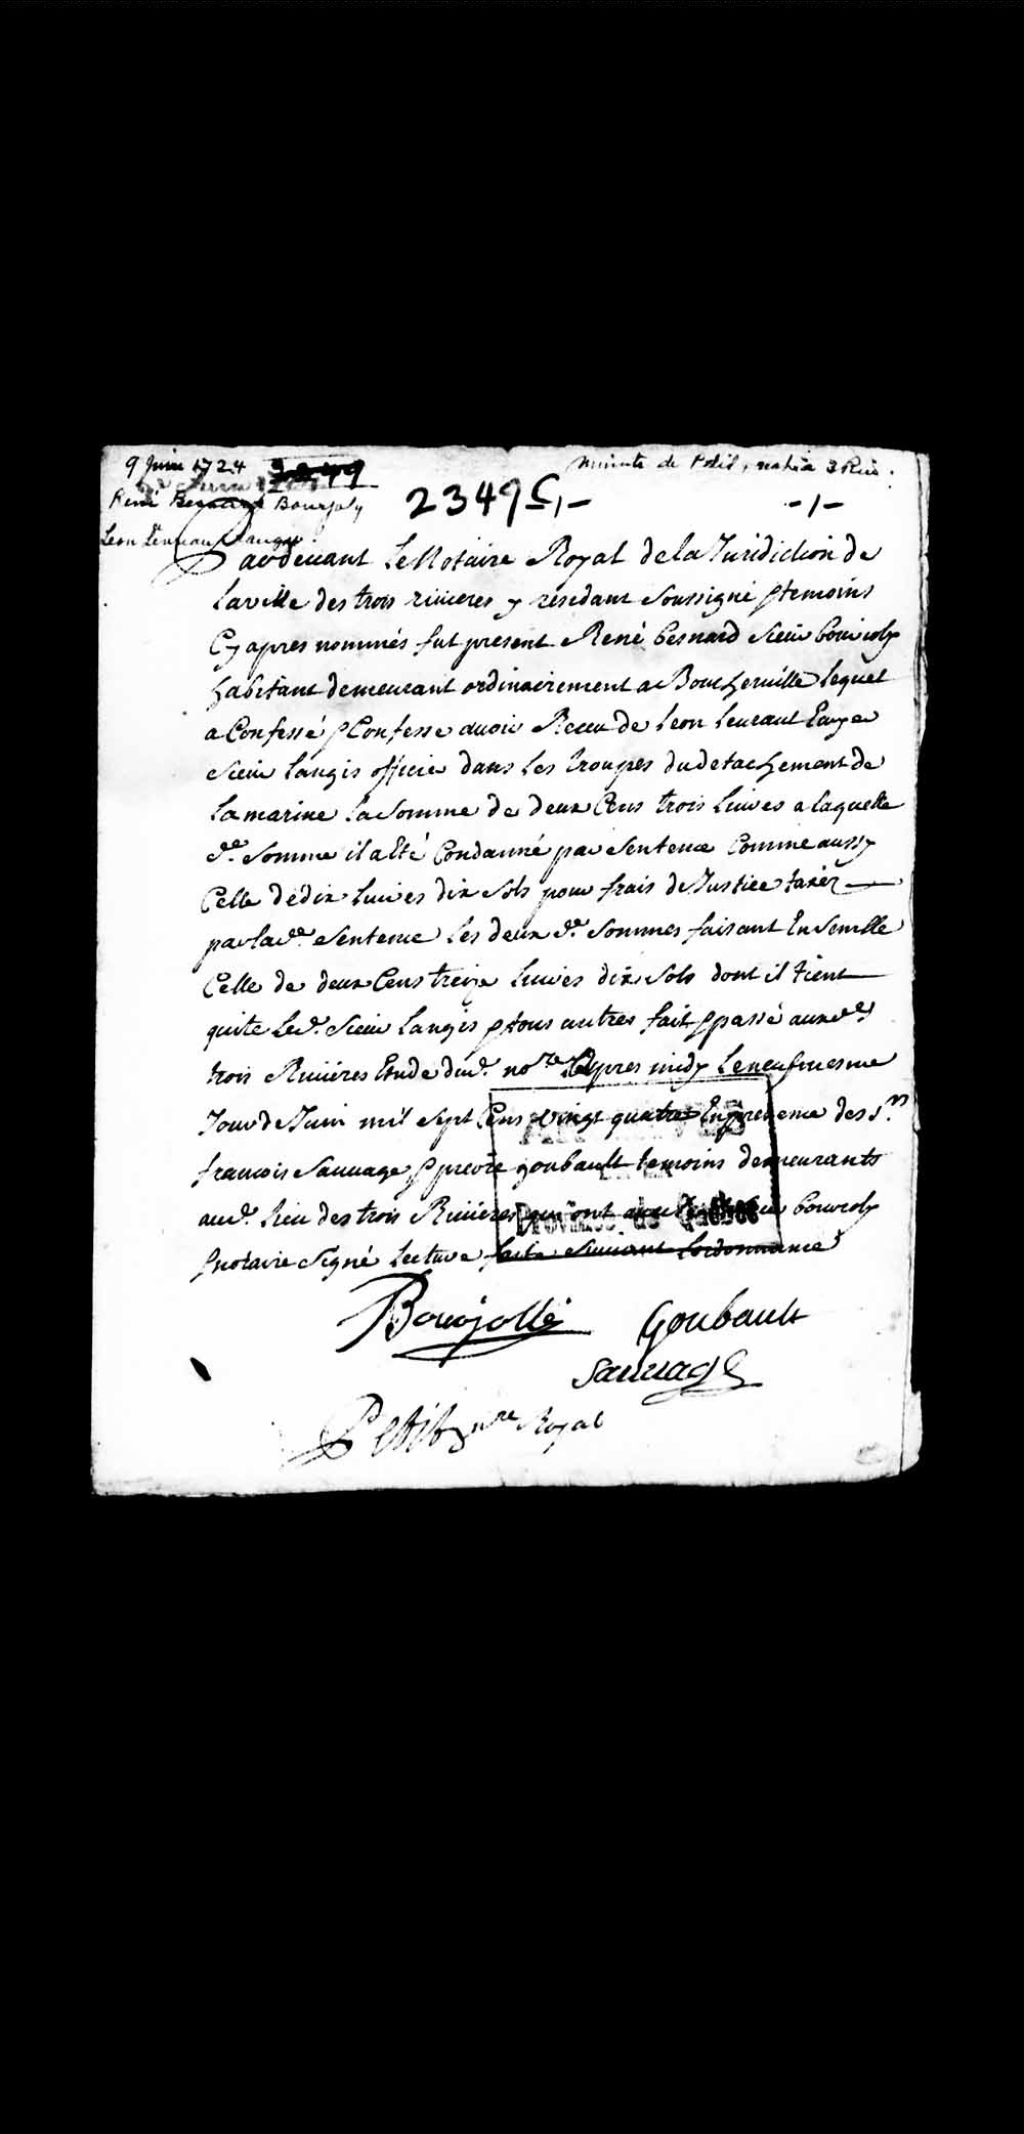 9 Juin 1724 2349
Minute de Petit, not. à 3 Riv.
René Besnard Bourjoly
2349
-1-
Leon Langis
Pardevant Le Notaire Royal de la Juridiction de
la ville des trois rivieres y residant Soussigné & temoins
Cy apres nommés fut present René besnard Sieur bourjoly
habitant demeurant ordinairement a Boucherville lequel
a Confessé & Confesse avoir Receu de Leon Leuraut
Sieur langis officier dans les troupes du detachement de
la marine la Somme de deux Cens trois livres a laquelle
de. Somme il a Eté Condanné par Sentence Comme aussy
Celle de dix livres dix Sols pour frais de Justice taxéz
par lade. Sentence les deux de. Sommes faisant Ensemble
Celle de deux Cens treize livres dix Sols dont il tient
quite led. Sieur langis & tous autres fait & passé auxd.
trois Riviéres Etude dud. nore. apres midy le neufviesme
Jour de Juin mil Sept Cens vingt quatre En presence des Srs.
francois Sauvage & pierre goubault temoins demeurants
aud. lieu des trois Riviéres qui ont avec led. Sieur bourjoly
& notaire Signé lecture faite Suivant lordonnance
Bourjolli
Goubault
Sauvage
Petit nre Royal
Province de Québec